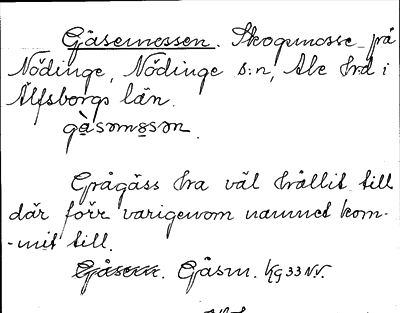 Gåsemossen. Skogsmosse på
Nödinge, Nödinge s:n, Ale hrd i
Älfsborgs län.
gå̀səmosən.
Grågäss ha väl hållit till
där förr varigenom namnet kom-
-mit till.
Gåsem. Gåsm. Kg 33 N.V.